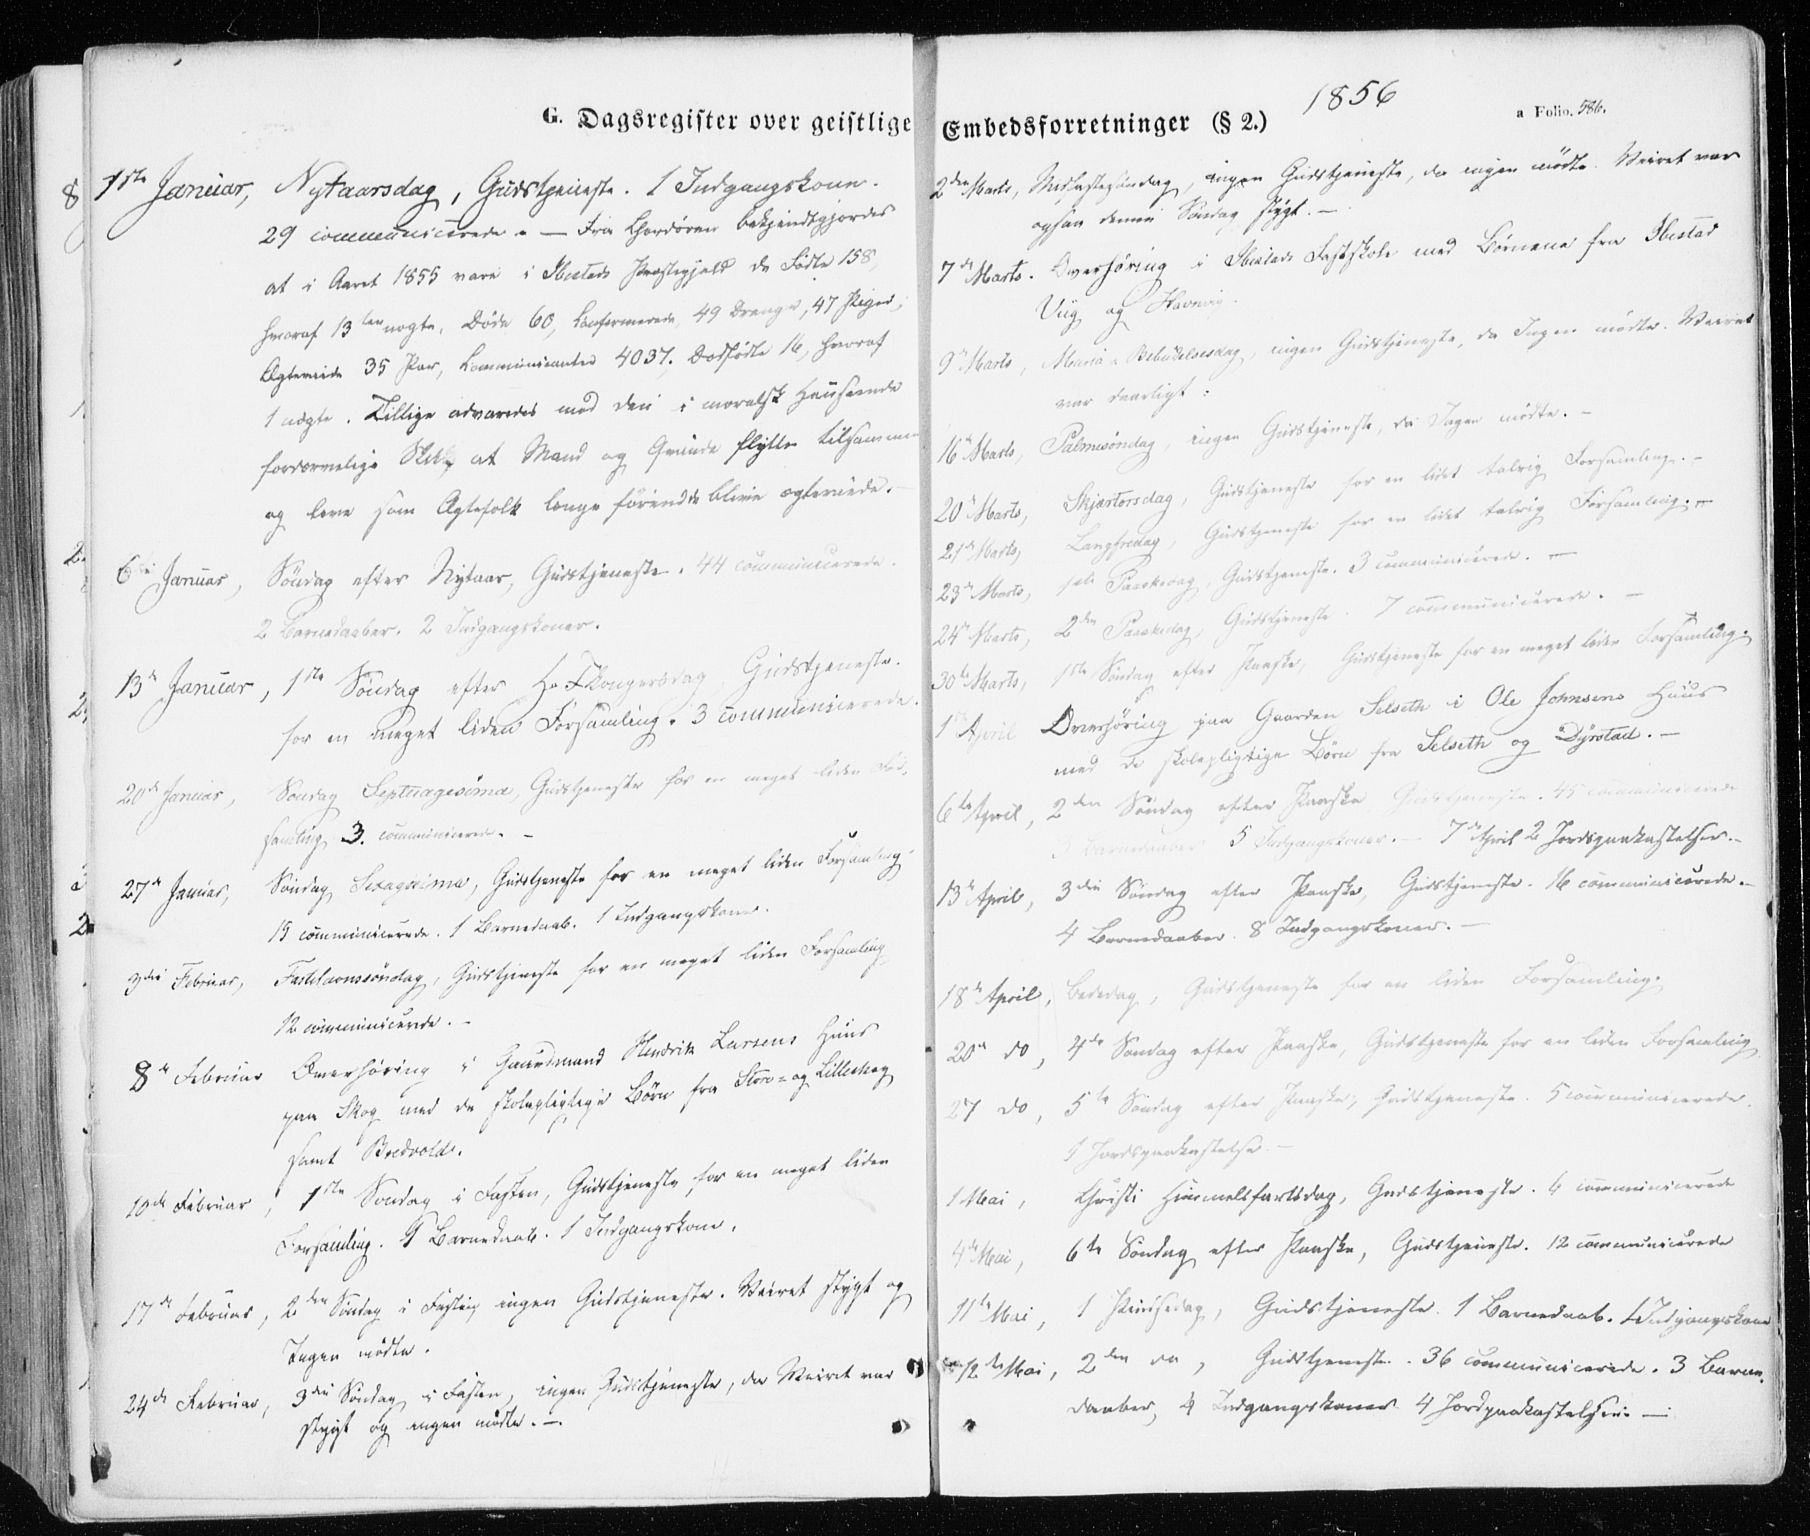 G. Dagsregister over geistlige Embedsforretninger (§ 2.)
1856
a Folio. 586.
1ste Januar, Nytaarsdag, Gudstjeneste. 1 Indgangskone.
29 communicerede. — Fra Chordøren bekjendtgjordes
at i Aaret 1855 vare i Ibestads Præstegjeld de Fødte 158,
hvoraf 13 uægte, Døde 60, Konfirmerede, 49 Drenge, 47 Piger,
Ægteviede 35 Par, Kommunicanter 4037. Dødfødte 16, hvoraf
1 uægte. Tillige advaredes mod den i moralsk Henseende
fordærvelige Skik, at Mand og Qvinde flytte tilsammen
og leve som Ægtefolk længe førend de blive ægteviede. —
6te Januar, Søndag efter Nytaar, Gudstjeneste. 44 communicerede.
2 Barnedaaber. 2 Indgangskoner.
13de Januar, 1ste Søndag efter H. 3 Kongersdag, Gudstjeneste.
for en meget liden Forsamling. 3 communicerede.
20de Januar, Søndag Septuagesima, Gudstjeneste for en meget liden For-
samling, 3. communicerede. —
27de Januar, Søndag Sexagesima, Gudstjeneste for en meget liden Forsamling
15 communicerede. 1 Barnedaab. 1 Indgangskone.
3die Februar, Fastelavnssøndag, Gudstjeneste for en meget liden Forsamling
12 communicerede. —
8de Februar Overhøring i Gaardmand Hendrik Larsens Huus
paa Skog med de skolepligtige Børn fra Store- og Lilleskog
samt Bredvold.
10de Februar, 1ste Søndag i Fasten, Gudstjeneste for en meget liden
Forsamling. 1 Barnedaab. 1 Indgangskone.
17de Februar, 2den Søndag i Fasten, ingen Gudstjeneste. Veiret stygt og
Ingen mødte.
24de Februar, 3die Søndag i Fasten, ingen Gudstjeneste, da Veiret var
stygt og ingen mødte. —
2den Marts, Midfastesøndag, ingen Gudstjeneste, da ingen mødte. Veiret var
ogsaa denne Søndag stygt. —
7de Marts. Overhøring i Ibestads Fastskole med Børnene fra Ibestad
Viig og Havnvig.
9de Marts, Mariæ Bebudelsesdag, ingen Gudstjeneste, da Ingen mødte. Veiret
var daarligt.
16de Marts, Palmesøndag, ingen Gudstjeneste, da Ingen mødte. —
20de Marts, Skjærtorsdag, Gudstjeneste for en lidet talrig Forsamling. —
21de Marts, Langfredag, Gudstjeneste for en lidet talrig Forsamling. —
23de Marts, Paaskedag, Gudstjeneste. 3 communicerede. —
24de Marts, 2den Paaskedag, Gudstjeneste. 7 communicerede. —
30te Marts, 1ste Søndag efter Paaske, Gudstjeneste for en meget liden Forsamling.
1ste April Overhøring paa Gaarden Selseth i Ole Johnsens Huus
med de skolepligtige Børn fra Selseth og Dyrstad. —
6te April, 2den Søndag efter Paaske Gudstjeneste. 45 communicerede
3 Barnedaaber 5 Indgangskoner. — 7de April 2 Jordspaakastelser. —
13de April, 3die Søndag efter Paaske, Gudstjeneste. 16 communicerede. —
4 Barnedaaber. 8 Indgangskoner. —
18de April, Bededag, Gudstjeneste for en liden Forsamling.
20de do, 4de Søndag efter Paaske, Gudstjeneste for en liden Forsamling
27 do, 5te Søndag efter Paaske, Gudstjeneste. 5 communicerede.
1 Jordspaakastelse. —
1 Mai, Christi Himmelfartsdag, Gudstjeneste. 4 communicerede
4de Mai, 6te Søndag efter Paaske, Gudstjeneste. 12 communicerede
11te Mai, 1 Pindsedag, Gudstjeneste. 1 Barnedaab. 1 Indgangskone
12te Mai, 2den do, Gudstjeneste. 36 communicerede. 3 Barne-
daaber, 4 Indgangskoner 4 Jordpaakastelser. —